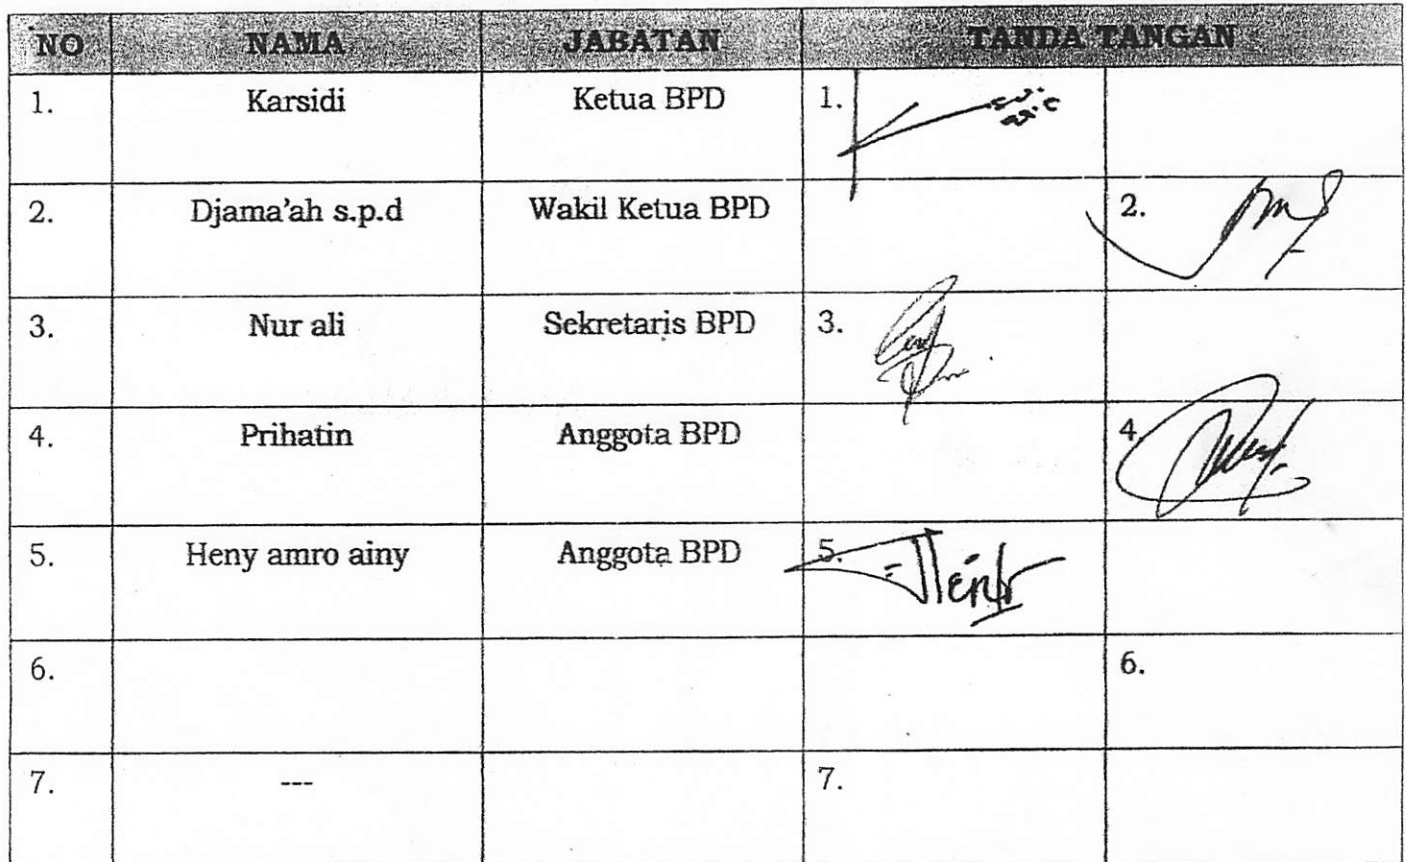 NO NAMA JABATAN TANDA TANGAN
1. Karsidi Ketua BPD 1.
2. Djama'ah s.p.d Wakil Ketua BPD 2.
3. Nur ali Sekretaris BPD 3.
4. Prihatin Anggota BPD 4.
5. Heny amro ainy Anggota BPD 5.
6. 6.
7. --- 7.